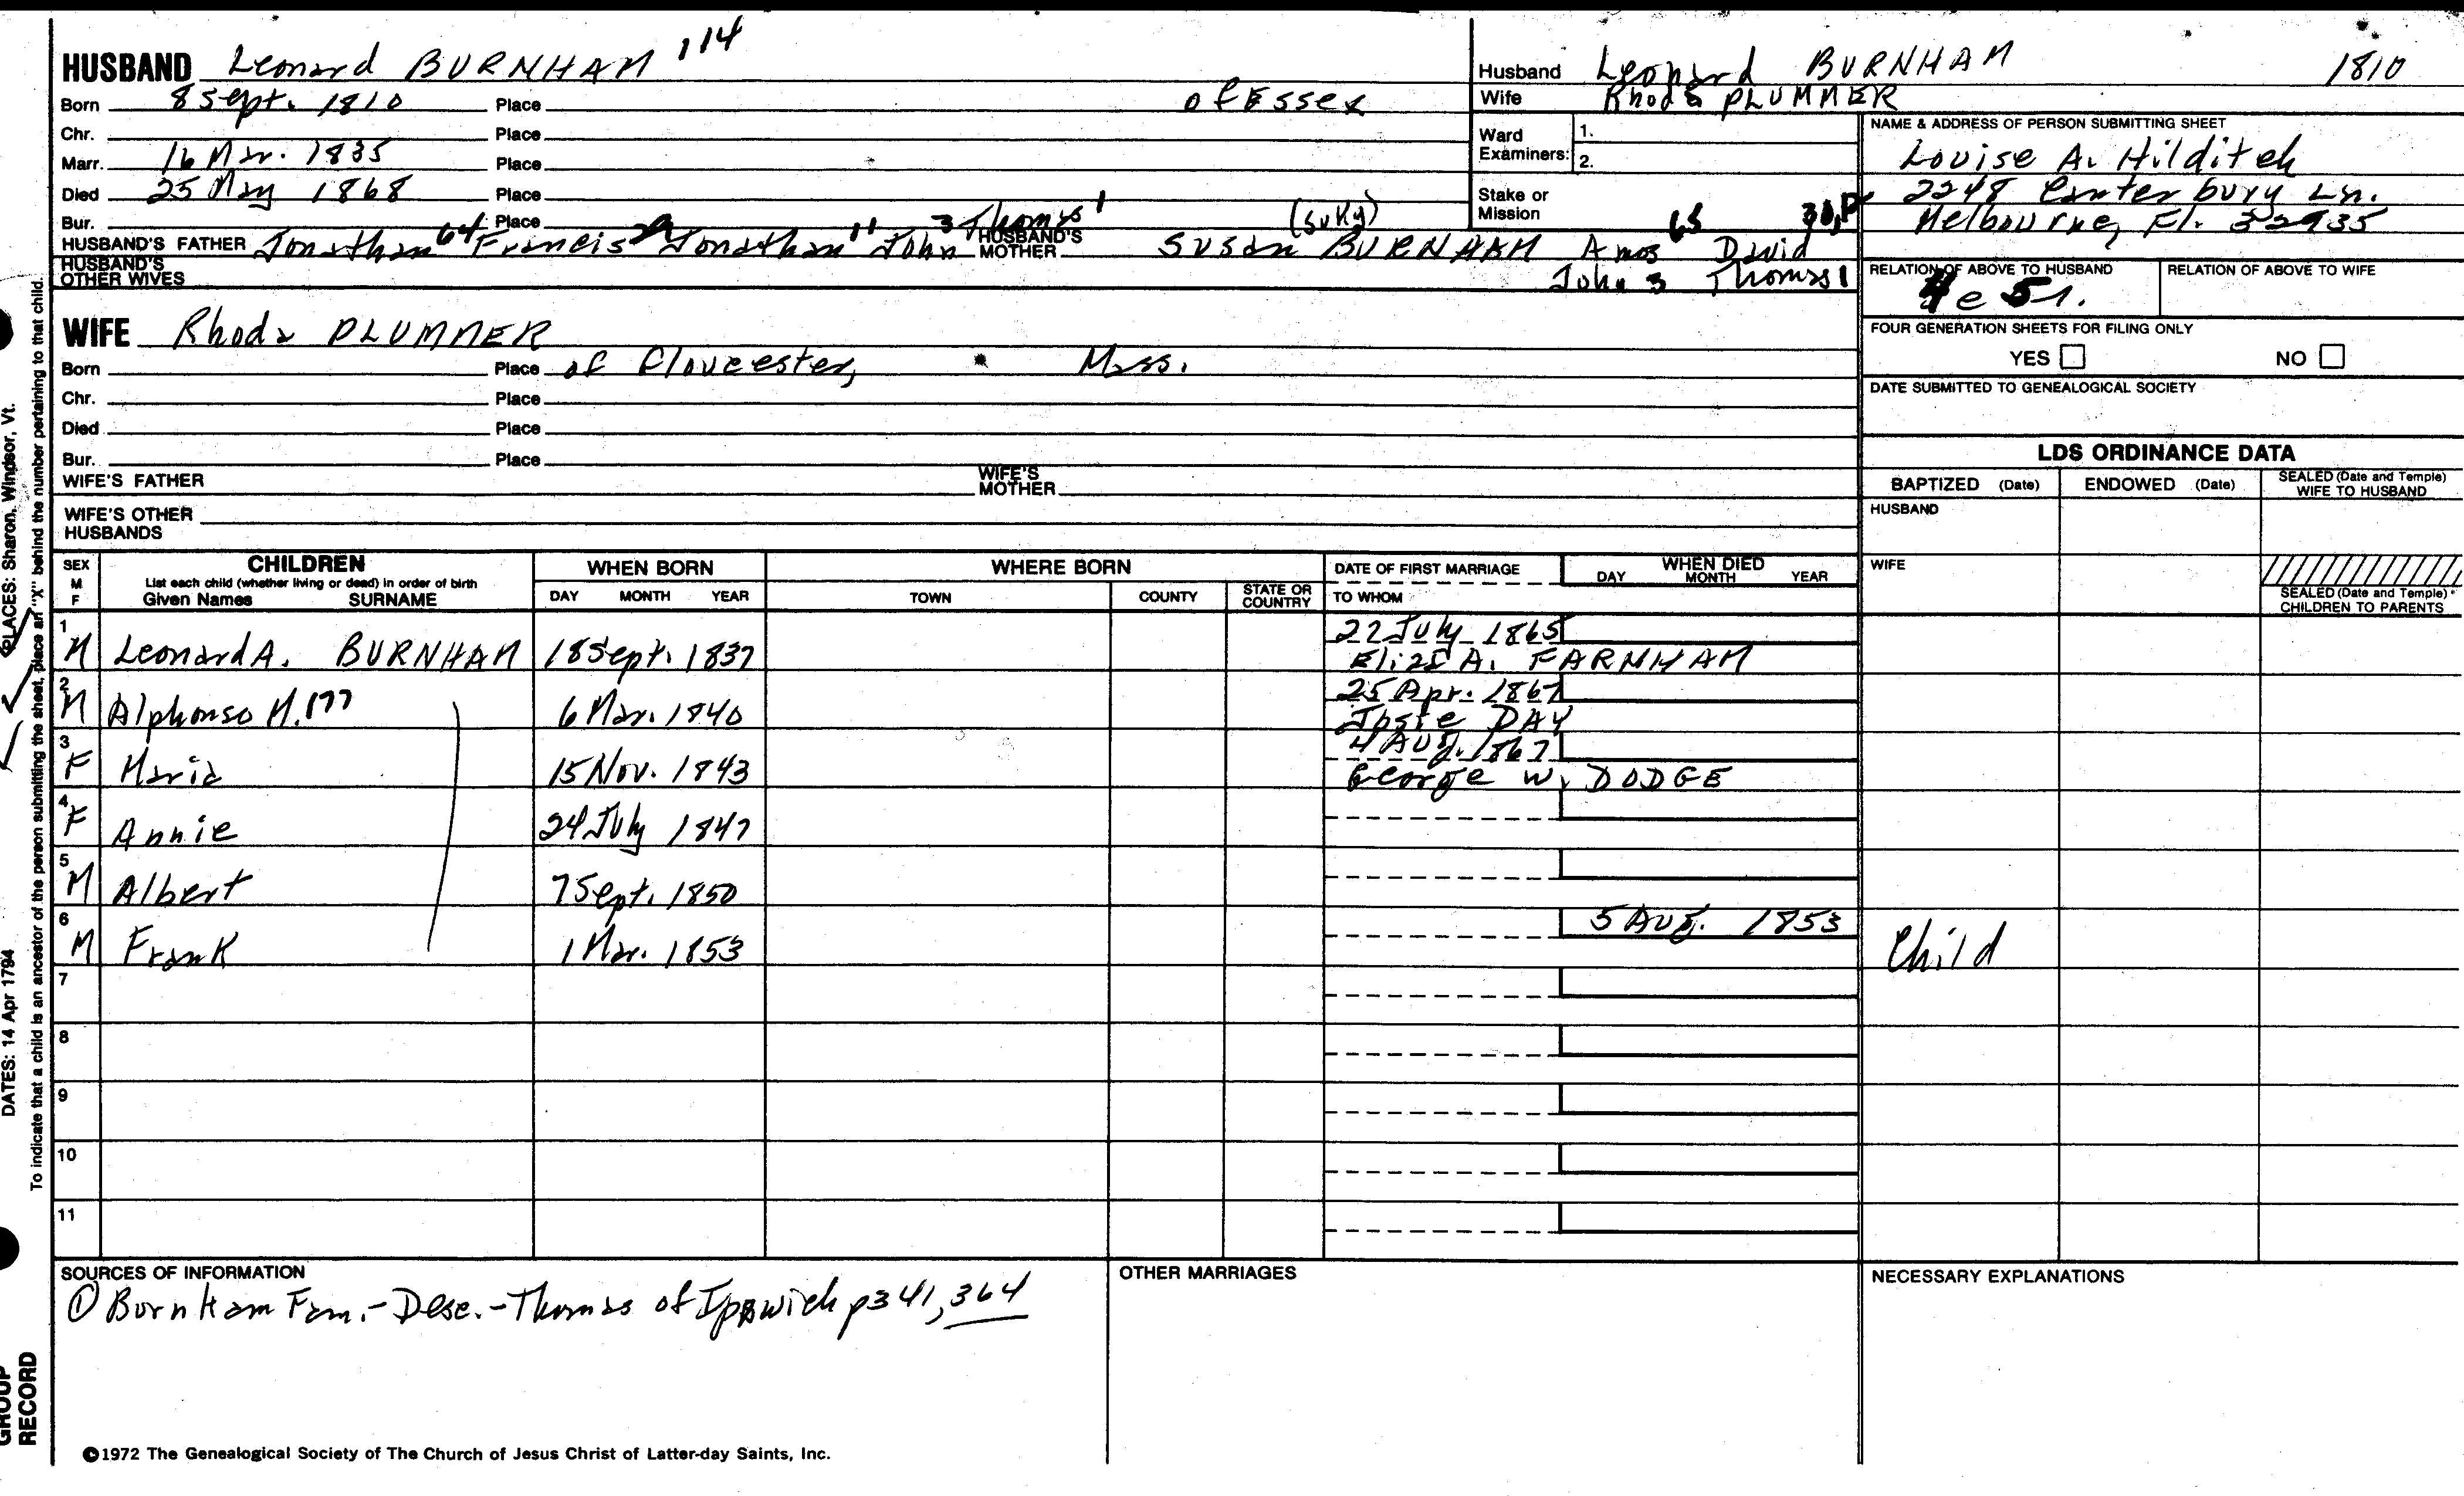 HUSBAND Leonard BURNHAM 114
Born 8 Sept. 1810 Place of Essex
Chr. Place
Marr. 16 Mar. 1835 Place
Died 25 May 1868 Place
Bur. Place
HUSBAND'S FATHER Jonathan 64 Francis 29 Jonathan 11 John 3 Thomas 1 HUSBAND'S MOTHER Susan (Suky) BURNHAM Amos 65 David 30,
John 3 Thomas 1
HUSBAND'S OTHER WIVES
WIFE Rhoda PLUMMER
Born Place of Gloucester, Mass.
Chr. Place
Died Place
Bur. Place
WIFE'S FATHER WIFE'S MOTHER
WIFE'S OTHER HUSBANDS
Husband Leonard BURNHAM 1810
Wife Rhoda PLUMMER
Ward Examiners: 1.
2.
Stake or Mission
NAME & ADDRESS OF PERSON SUBMITTING SHEET
Louise A. Hilditch
2248 Canterbury Ln.
Melbourne, Fl. 32935
RELATION OF ABOVE TO HUSBAND RELATION OF ABOVE TO WIFE
FOUR GENERATION SHEETS FOR FILING ONLY
YES NO
DATE SUBMITTED TO GENEALOGICAL SOCIETY
LDS ORDINANCE DATA
BAPTIZED (Date) ENDOWED (Date) SEALED (Date and Temple) WIFE TO HUSBAND
HUSBAND
WIFE
SEALED (Date and Temple) CHILDREN TO PARENTS
SEX M F CHILDREN WHEN BORN WHERE BORN DATE OF FIRST MARRIAGE WHEN DIED
List each child (whether living or dead) in order of birth
Given Names SURNAME DAY MONTH YEAR TOWN COUNTY STATE OR COUNTRY TO WHOM DAY MONTH YEAR
1 M Leonard A. BURNHAM 18 Sept. 1837 22 July 1865
Eliza A. FARNHAM
2 M Alphonso M. 177 6 Mar. 1840 25 Apr. 1867
Josie DAY
3 F Maria 15 Nov. 1843 4 Aug. 1867
George W. DODGE
4 F Annie 24 July 1847
5 M Albert 7 Sept. 1850
6 M Frank 1 Mar. 1853 5 Aug. 1853 Child
7
8
9
10
11
SOURCES OF INFORMATION
① Burnham Fam.-Desc.-Thomas of Ipswich p341, 364
OTHER MARRIAGES
NECESSARY EXPLANATIONS
©1972 The Genealogical Society of The Church of Jesus Christ of Latter-day Saints, Inc.
PLACES: Sharon, Windsor, Vt.
DATES: 14 Apr 1794
To indicate that a child is an ancestor of the person submitting the sheet, place an "X" behind the number pertaining to that child.
GROUP
RECORD